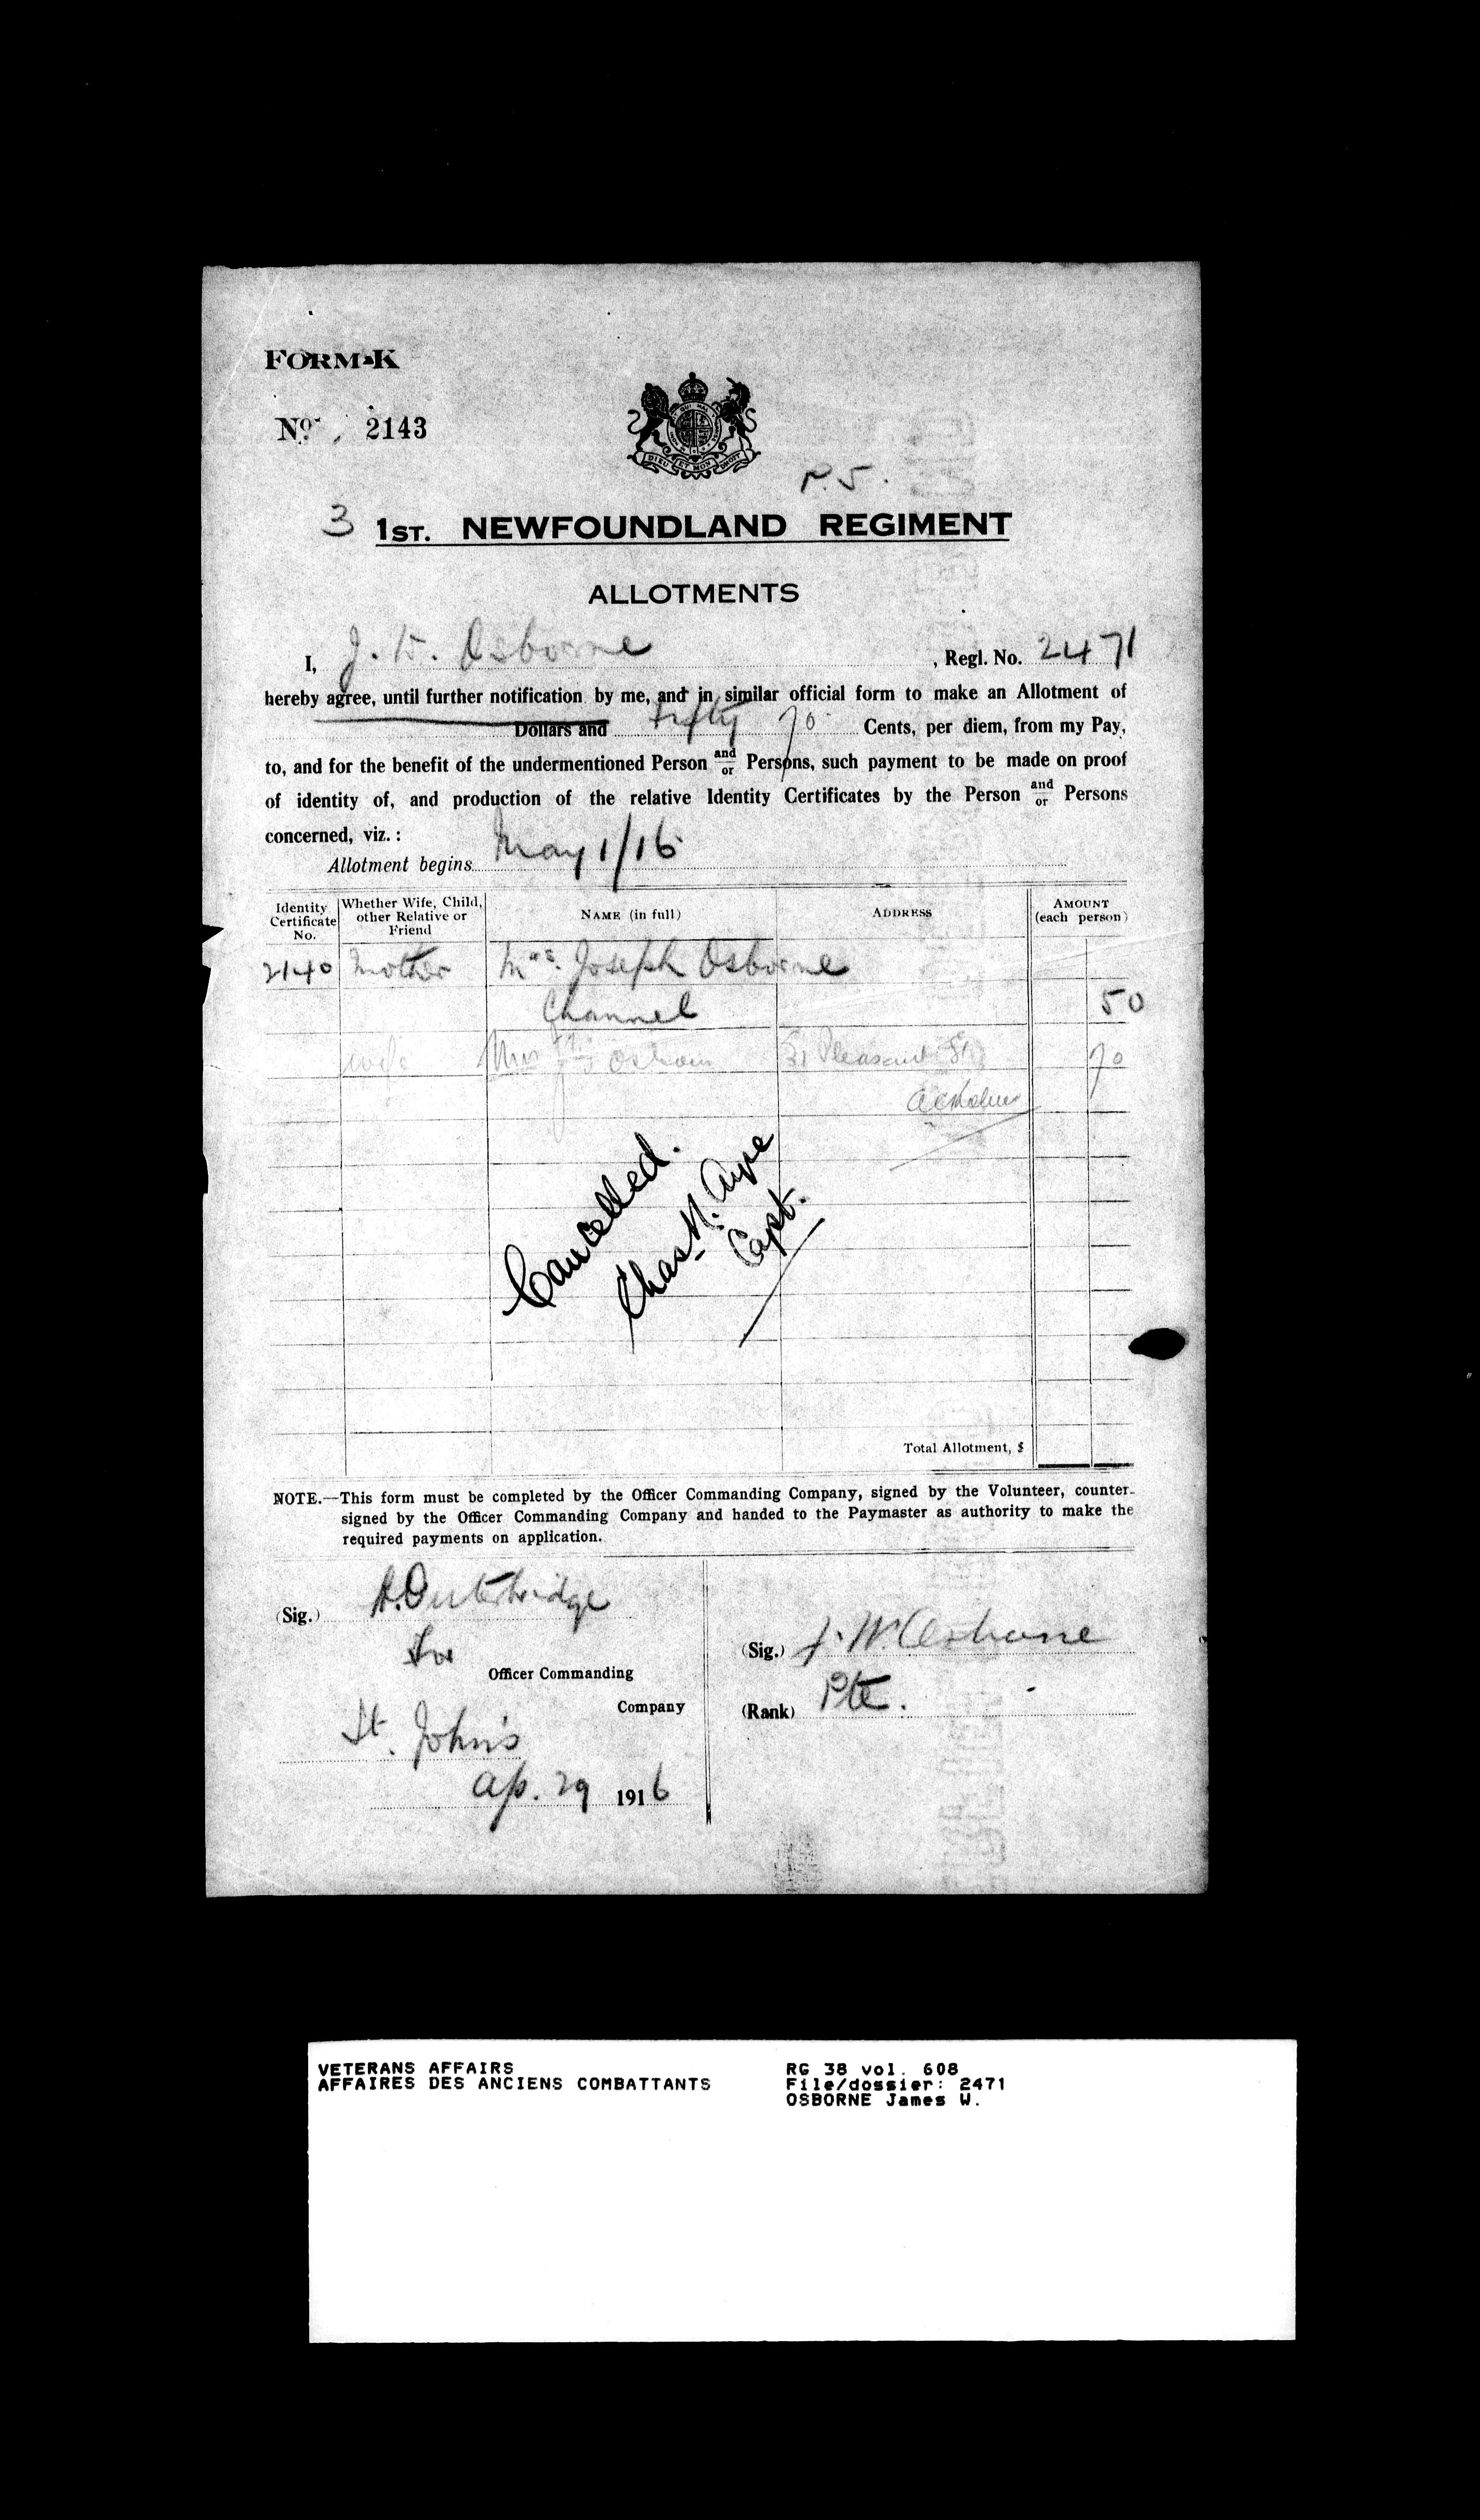 FORM-K
No. 2143
DIEU ET MON DROIT
P. 5.
3 1ST. NEWFOUNDLAND REGIMENT
ALLOTMENTS
I, J. W. Osborne, Regl. No. 2471
hereby agree, until further notification by me, and in similar official form to make an Allotment of
Dollars and fifty 70 Cents, per diem, from my Pay,
to, and for the benefit of the undermentioned Person and/or Persons, such payment to be made on proof
of identity of, and production of the relative Identity Certificates by the Person and/or Persons
concerned, viz. :
Allotment begins May 1/16
Identity Certificate No. Whether Wife, Child, other Relative or Friend NAME (in full) ADDRESS AMOUNT (each person)
2140 Mother Mrs. Joseph Osborne
Channel 50
wife Mrs Osborn 31 Pleasant St 70
Cancelled.
Chas. H. Ayre
Capt.
Total Allotment, $
NOTE.—This form must be completed by the Officer Commanding Company, signed by the Volunteer, counter-
signed by the Officer Commanding Company and handed to the Paymaster as authority to make the
required payments on application.
(Sig.) A. Outerbridge
for
Officer Commanding
Company
St. John's
Ap. 29 1916
(Sig.) J. W. Osborne
(Rank) Pte.
VETERANS AFFAIRS
AFFAIRES DES ANCIENS COMBATTANTS
RG 38 vol. 608
File/dossier: 2471
OSBORNE James W.